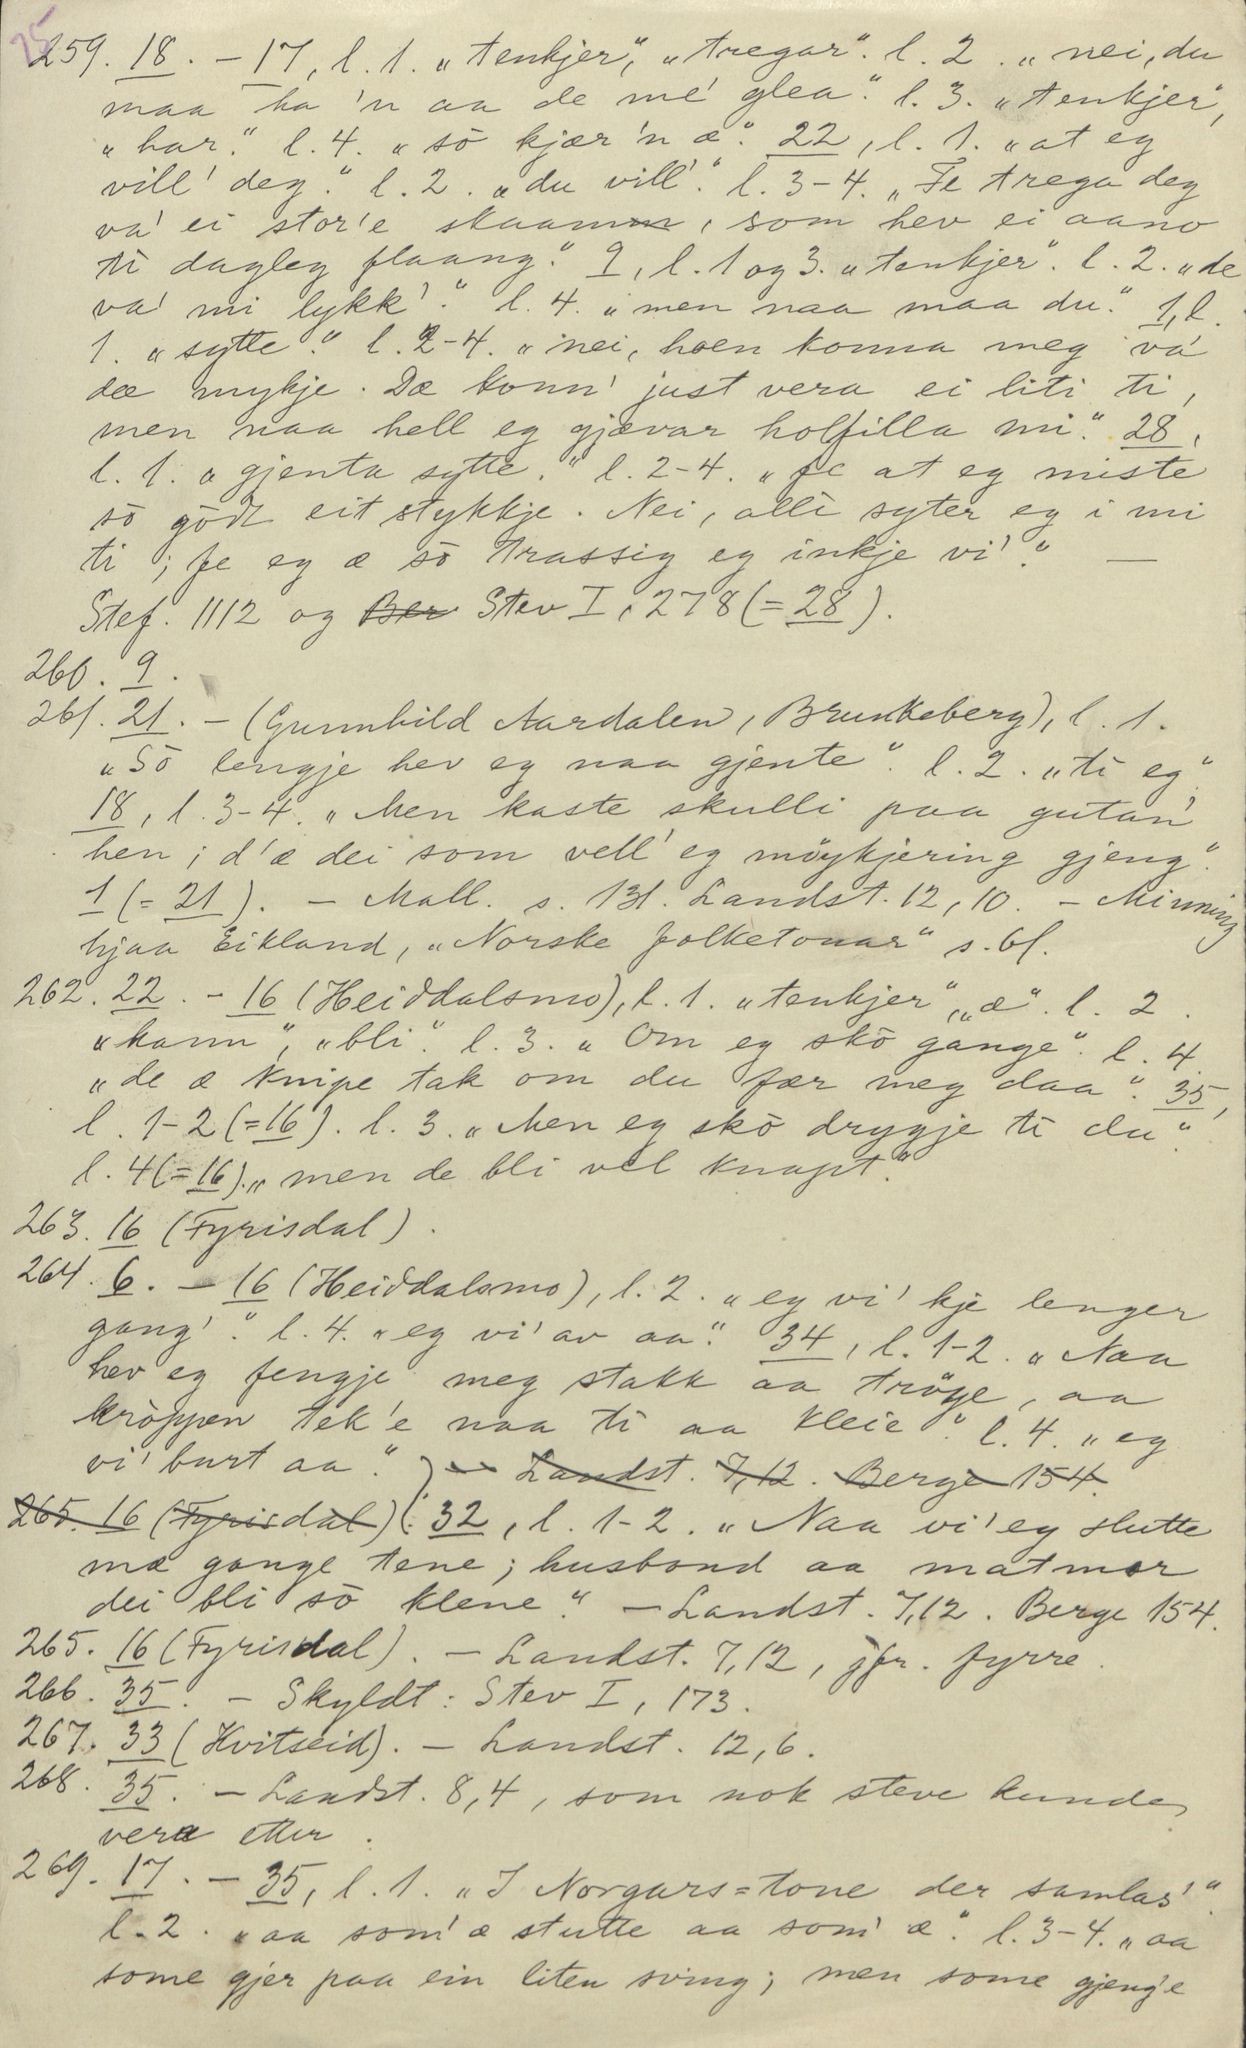 25
259. 18. – 17, l. 1. „tenkjer“, „tregar“. l. 2. „nei, du
maa ha 'n aa de me' glea“. l. 3. „tenkjer“,
„har“. l. 4. „sò kjær'n æ“. 22, l. 1. „at eg
vill' deg“. l. 2. „du vill'“. l. 3-4. „Fe trega deg
va' ei stor'e skaam, som hev ei aano
ti dagleg flaang“. 9, l. 1 og 3. „tenkjer“. l. 2. „de
va' mi lykk'“. l. 4. „men naa maa du“. 1, l.
1. „sytte“. l. 2-4. „nei, hoen konna meg va'
dæ mykje. Dæ konn' just vera ei liti ti,
men naa hell eg gjævar holfilla mi“. 28,
l. 1. „gjenta sytte“. l. 2-4. „fe at eg miste
sò gòdt eit stykkje. Nei, alli syter eg i mi
ti; fe eg æ sò trassig eg inkje vi'“. –
Stef. 1112 og Ber Stev I, 278 (= 28).
260. 9.
261. 21. – (Gunnhild Aardalen, Brunkeberg), l. 1.
„Sò lengje hev eg naa gjente“. l. 2. „ti eg“.
18, l. 3-4. „Men kaste skulli paa gutan'
hen; d'æ dei som vell' eg möykjering gjeng“.
1 (= 21). – Mall. s. 131. Landst. 12, 10. – Minning
hjaa Eikland, „Norske folketonar“ s. 61.
262. 22. – 16 (Heiddalsmo), l. 1. „tenkjer“, „æ“. l. 2.
„kann“, „bli“. l. 3. „Om eg skò gange“. l. 4.
„de æ knipe tak om du fær meg daa“. 35,
l. 1-2 (= 16). l. 3. „Men eg skò drygje ti du“.
l. 4 (= 16). „men de bli vel knapt“.
263. 16 (Fyrisdal).
264. 6. – 16 (Heiddalsmo), l. 2. „eg vi' kje lenger
gang'“. l. 4. „eg vi' av aa“. 34, l. 1-2. „Naa
hev eg fengje meg stakk aa tröye, aa
kròppen tek'e naa ti aa kleie“. l. 4. „eg
vi' burt aa“. ) – Landst. 7, 12. Berge 154.
265. 16 (Fyrisdal) (. 32, l. 1-2. „Naa vi' eg slutte
mæ gange tene; husbond aa matmor
dei bli sò klene“. – Landst. 7, 12. Berge 154.
265. 16 (Fyrisdal). – Landst. 7, 12, jfr. fyrre.
266. 35. – Skyldt: Stev I, 173.
267. 33 (Kvitseid). – Landst. 12, 6.
268. 35. – Landst. 8, 4, som nok steve kunde
vera etter.
269. 17. – 35, l. 1. „I Norgars=tone der samlas'“.
l. 2. „aa som' æ stutte aa som' æ“. l. 3-4. „aa
some gjer paa ein liten sving; men some gjeng'e